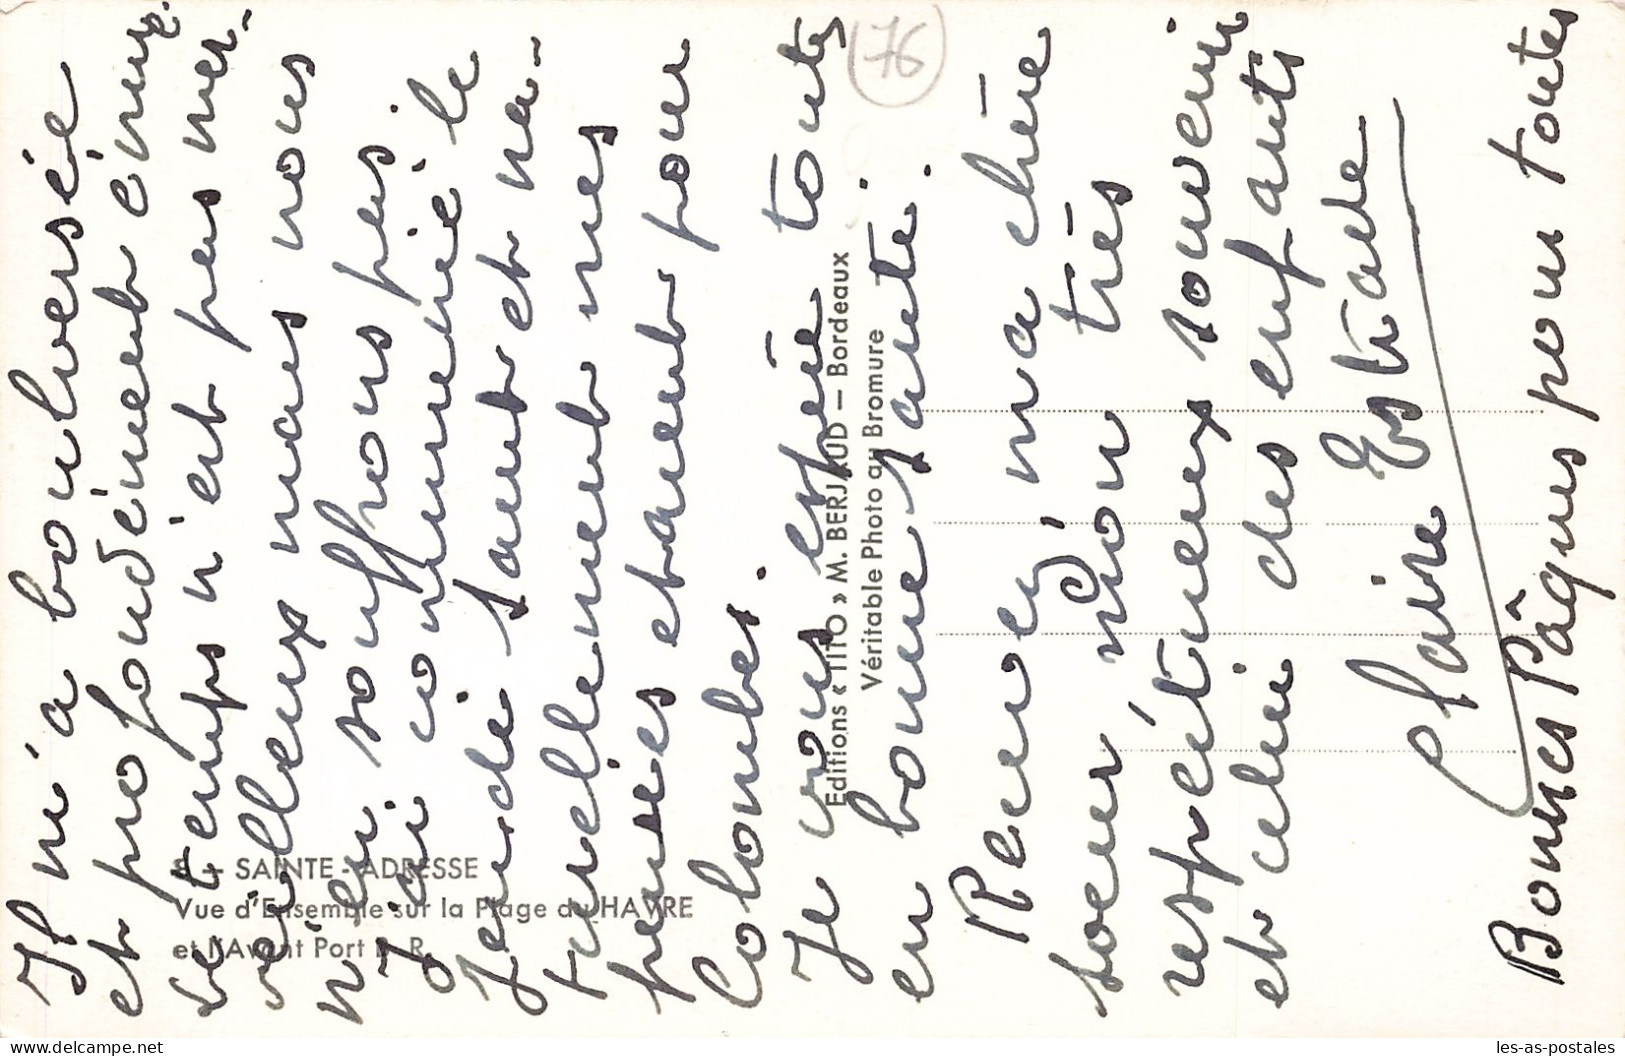 Il m'a bouleversé
et profondément émue.
Le temps n'est pas mer-
veilleux mais nous
n'en souffrons pas.
J'ai communié le
Jeudi saint et na-
turellement mes
pensées étaient pour
Colombes.
Je vous espère toutes
en bonne santé.
Recevez ma chère
soeur mon très
respectueux souvenir
et celui des enfants
Claire Estrade
Bonnes Pâques pour toutes
(76)
8 - SAINTE-ADRESSE
Vue d'Ensemble sur la Plage du HAVRE
et l'Avant Port N. R.
Editions « TITO » M. BERJAUD — Bordeaux
Véritable Photo au Bromure
les-as-postales.com
les-as-postales